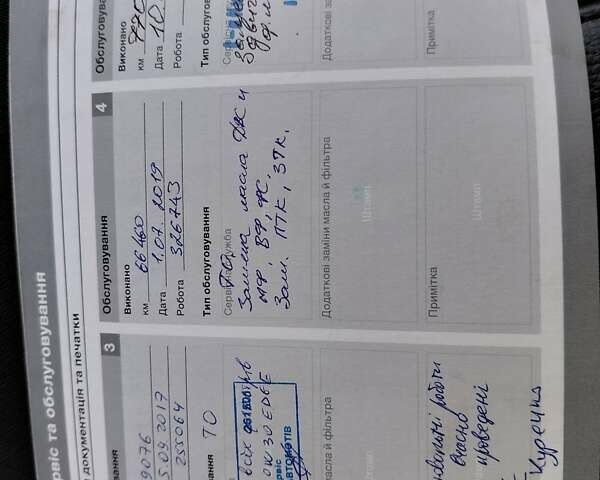 рвіс та обслуговування
документація та печатки
3
вання
9076
5.09.2017
255064
вання ТО
всіх фільтрів
0W30 EDGE
рвіс
АВТОМОТІВ
масла й фільтра
вчасно
проведені
4
Обслуговування
Виконано
км 66460
Дата 1.07.2019
Робота 326743
Тип обслуговування
Сервісна служба
ТО
Замена масла ДВС и
МФ, ВФ, ФС.
Зам. ПТК, ЗТК.
Додаткові заміни масла й фільтра
Штамп
Примітка
Штамп
Обслуговування
Виконано
км
Дата 10.
Робота
Тип обслугов
Сервісна
Додаткові з
Примітка